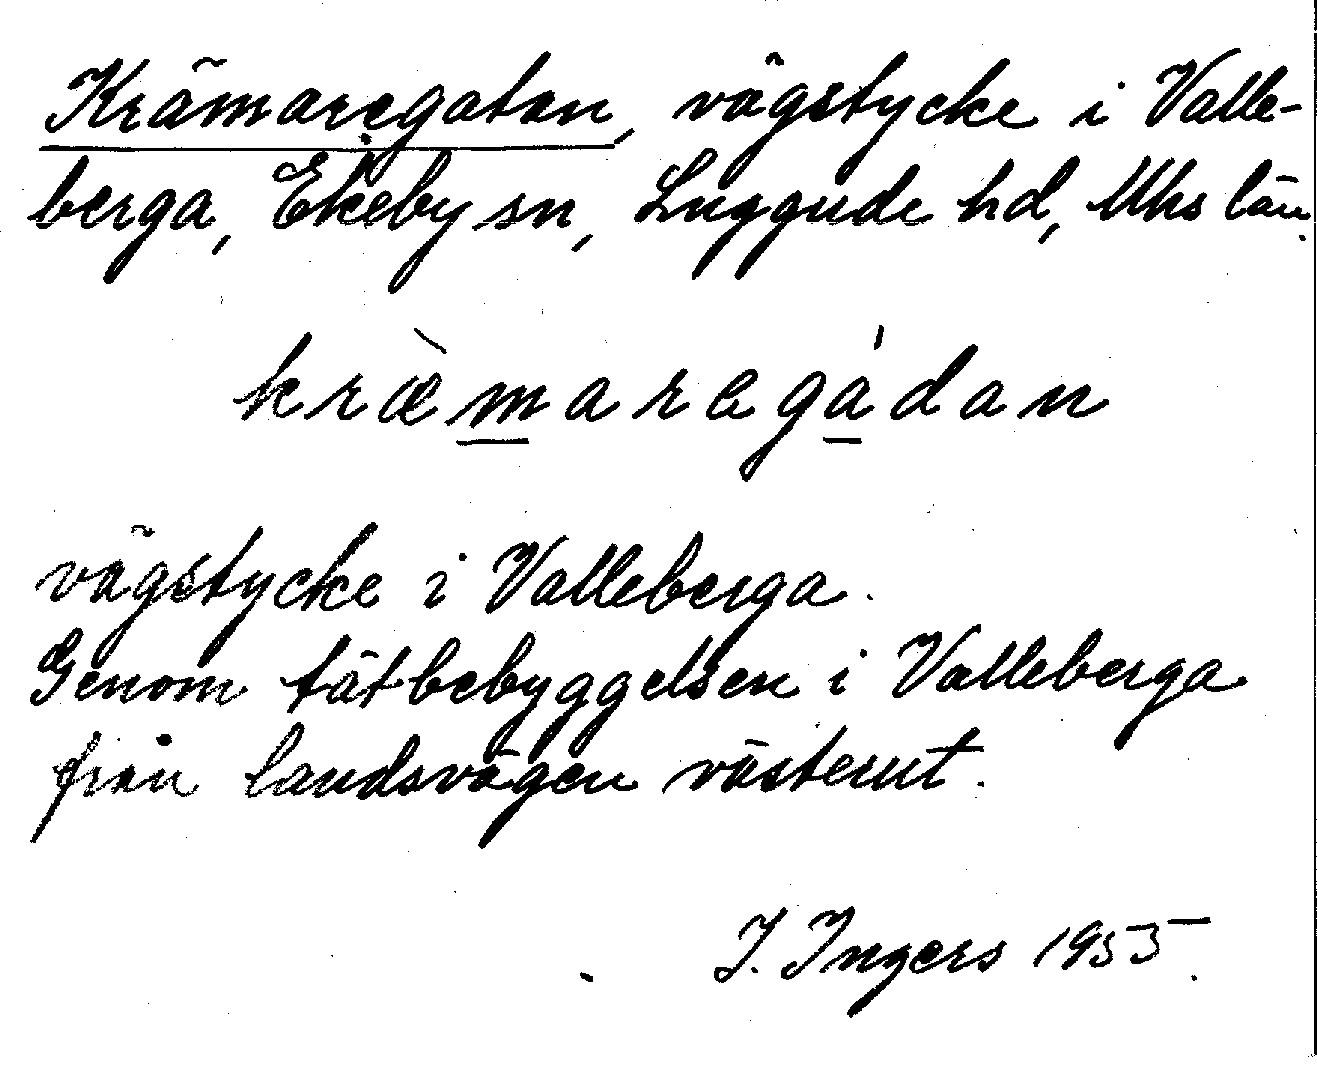 Krämaregatan, vägstycke i Valle-
berga, Ekeby sn, Luggude hd, Mhs län.
kræ̀maregádan
vägstycke i Valleberga.
Genom tätbebyggelsen i Valleberga
från landsvägen västerut.
I. Ingers 1955.